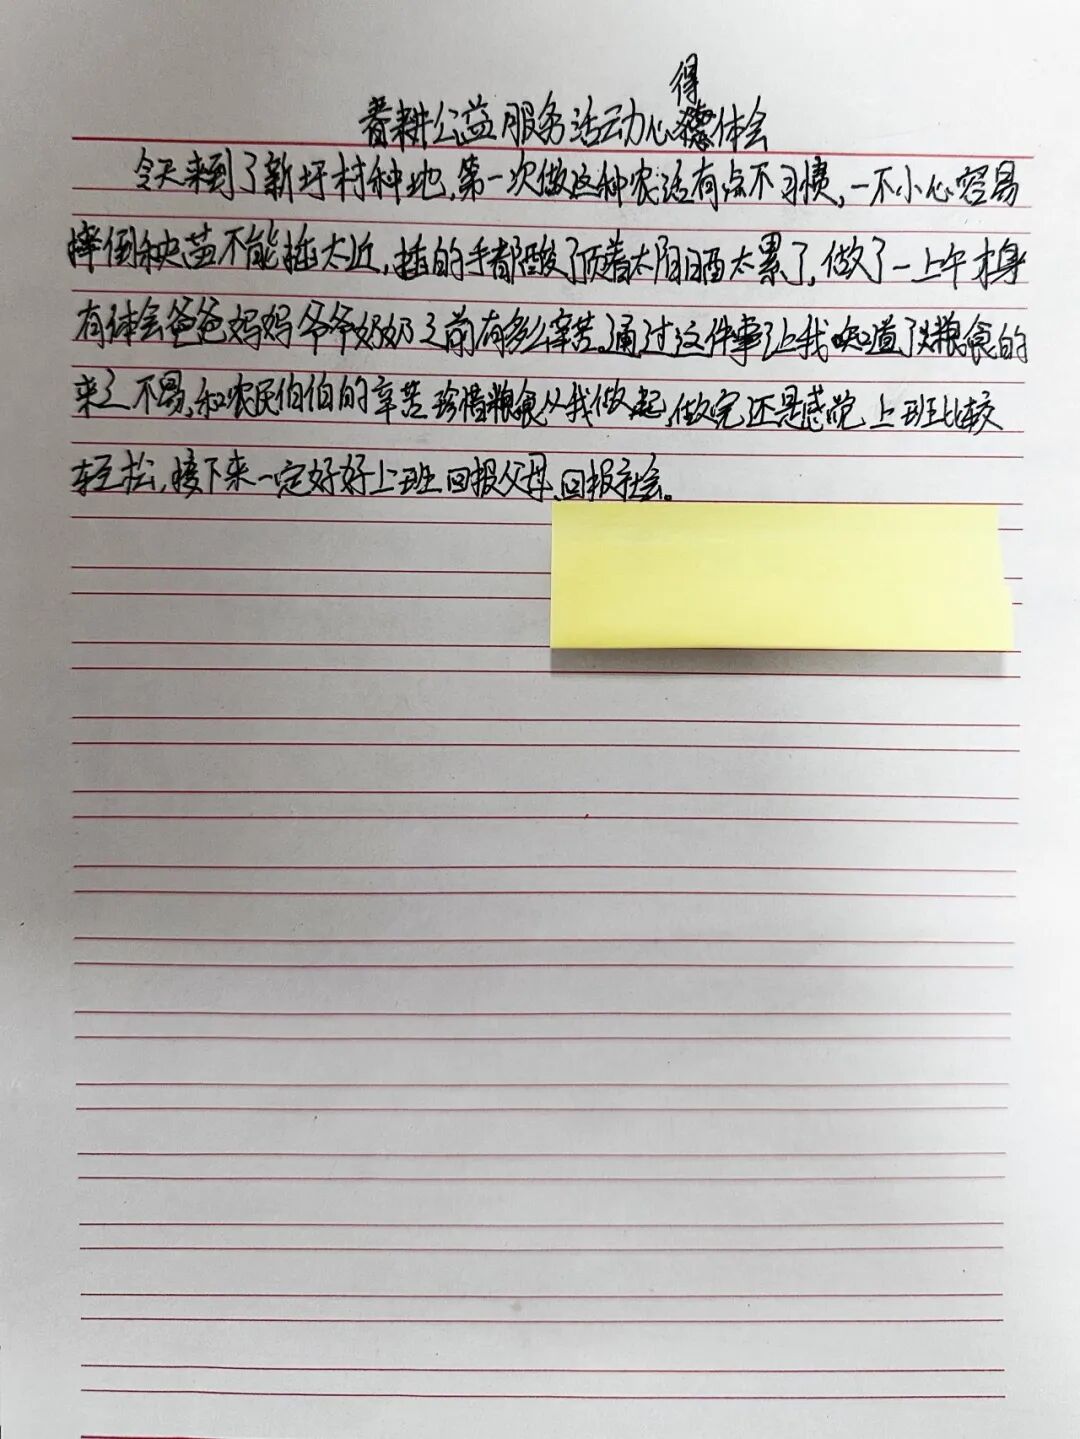 春耕公益服务活动心得体会
今天来到了新圩村种地，第一次做这种农活有点不习惯，一不小心容易
摔倒秧苗不能插太近，插的手都酸了顶着太阳晒太累了，做了一上午才身
有体会爸爸妈妈爷爷奶奶之前有多么辛苦。通过这件事让我知道了粮食的
来之不易，和农民伯伯的辛苦珍惜粮食从我做起，做完还是感觉上班比较
轻松，接下来一定好好上班回报父母、回报社会。